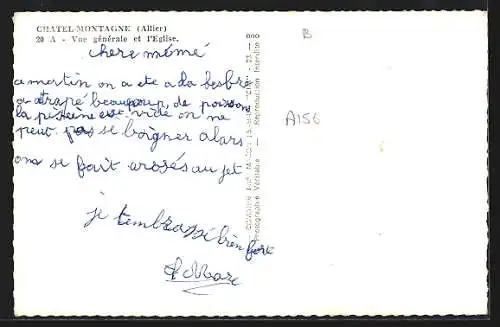 CHATEL-MONTAGNE (Allier)
20 A - Vue générale et l'Eglise.
chere mémé
a martin on a ete a la besbre
a atrapé beaucoup de poissons
la pissine est vide on ne
peut pas se baigner alars
ons se fait arosés au jet
je t'embrasse bien fort
Marc
B
A156
Photographie Véritable - Reproduction Interdite